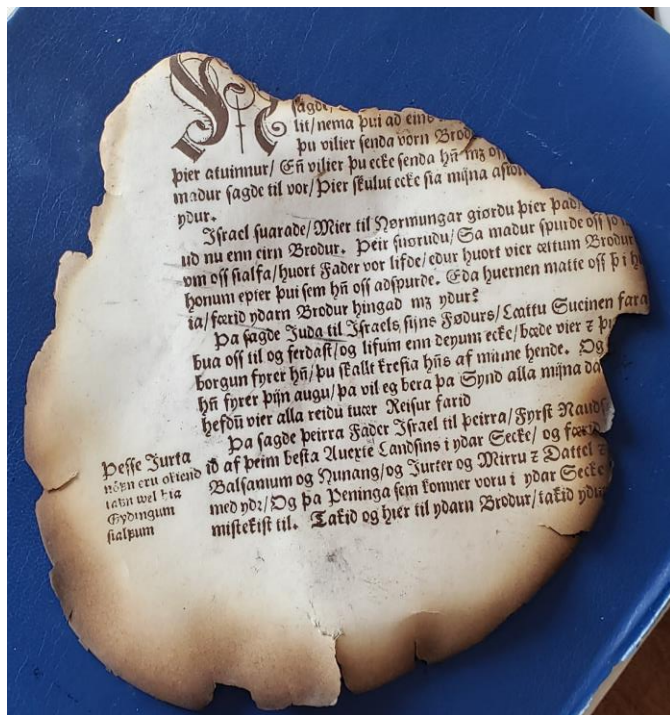 sagde/
lit/nema þui ad eins
þu vilier senda vorn Brod
þier atuinnur/ Eñ vilier þu ecke senda hñ mz oss
madur sagde til vor/ Þier skulut ecke sia mijna
ydur.
Israel suarade/ Mier til Nørmungar giørdu þier þad/
ud nu enn eirn Brodur. Þeir suørudu/ Sa madur spurde oss so
vm oss sialfa/huort Fader vor lifde/edur huort vier ættum Brodur
honum epter þui sem hñ oss adspurde. Eda huernen matte oss þ i h
ia/færid ydarn Brodur hingad mz ydur?
Þa sagde Juda til Israels sijns Fødurs/ Lættu Sueinen fara
bua oss til og ferdast/og lifum enn deyum ecke/bæde vier z þu
borgun fyrer hñ/þu skallt krefia hñs af minne hende. Og
hñ fyrer þijn augu/þa vil eg bera þa Synd alla mijna da
hefdũ vier alla reidu tuær Reisur farid
Þa sagde þeirra Fader Israel til þeirra/ Fyrst Naudsyn
id af þeim besta Auexte Landsins i ydar Secke/ og færid
Balsamum og Nunang/og Jurter og Mirru z Dattel z
med ydr/ Og þa Peninga sem komner voru i ydar Secke
mistekist til. Takid og hier til ydarn Brodur/takid ydur
Þesse Jurta
nøfn eru okiend
iafn wel hia
Gydingum
sialpum